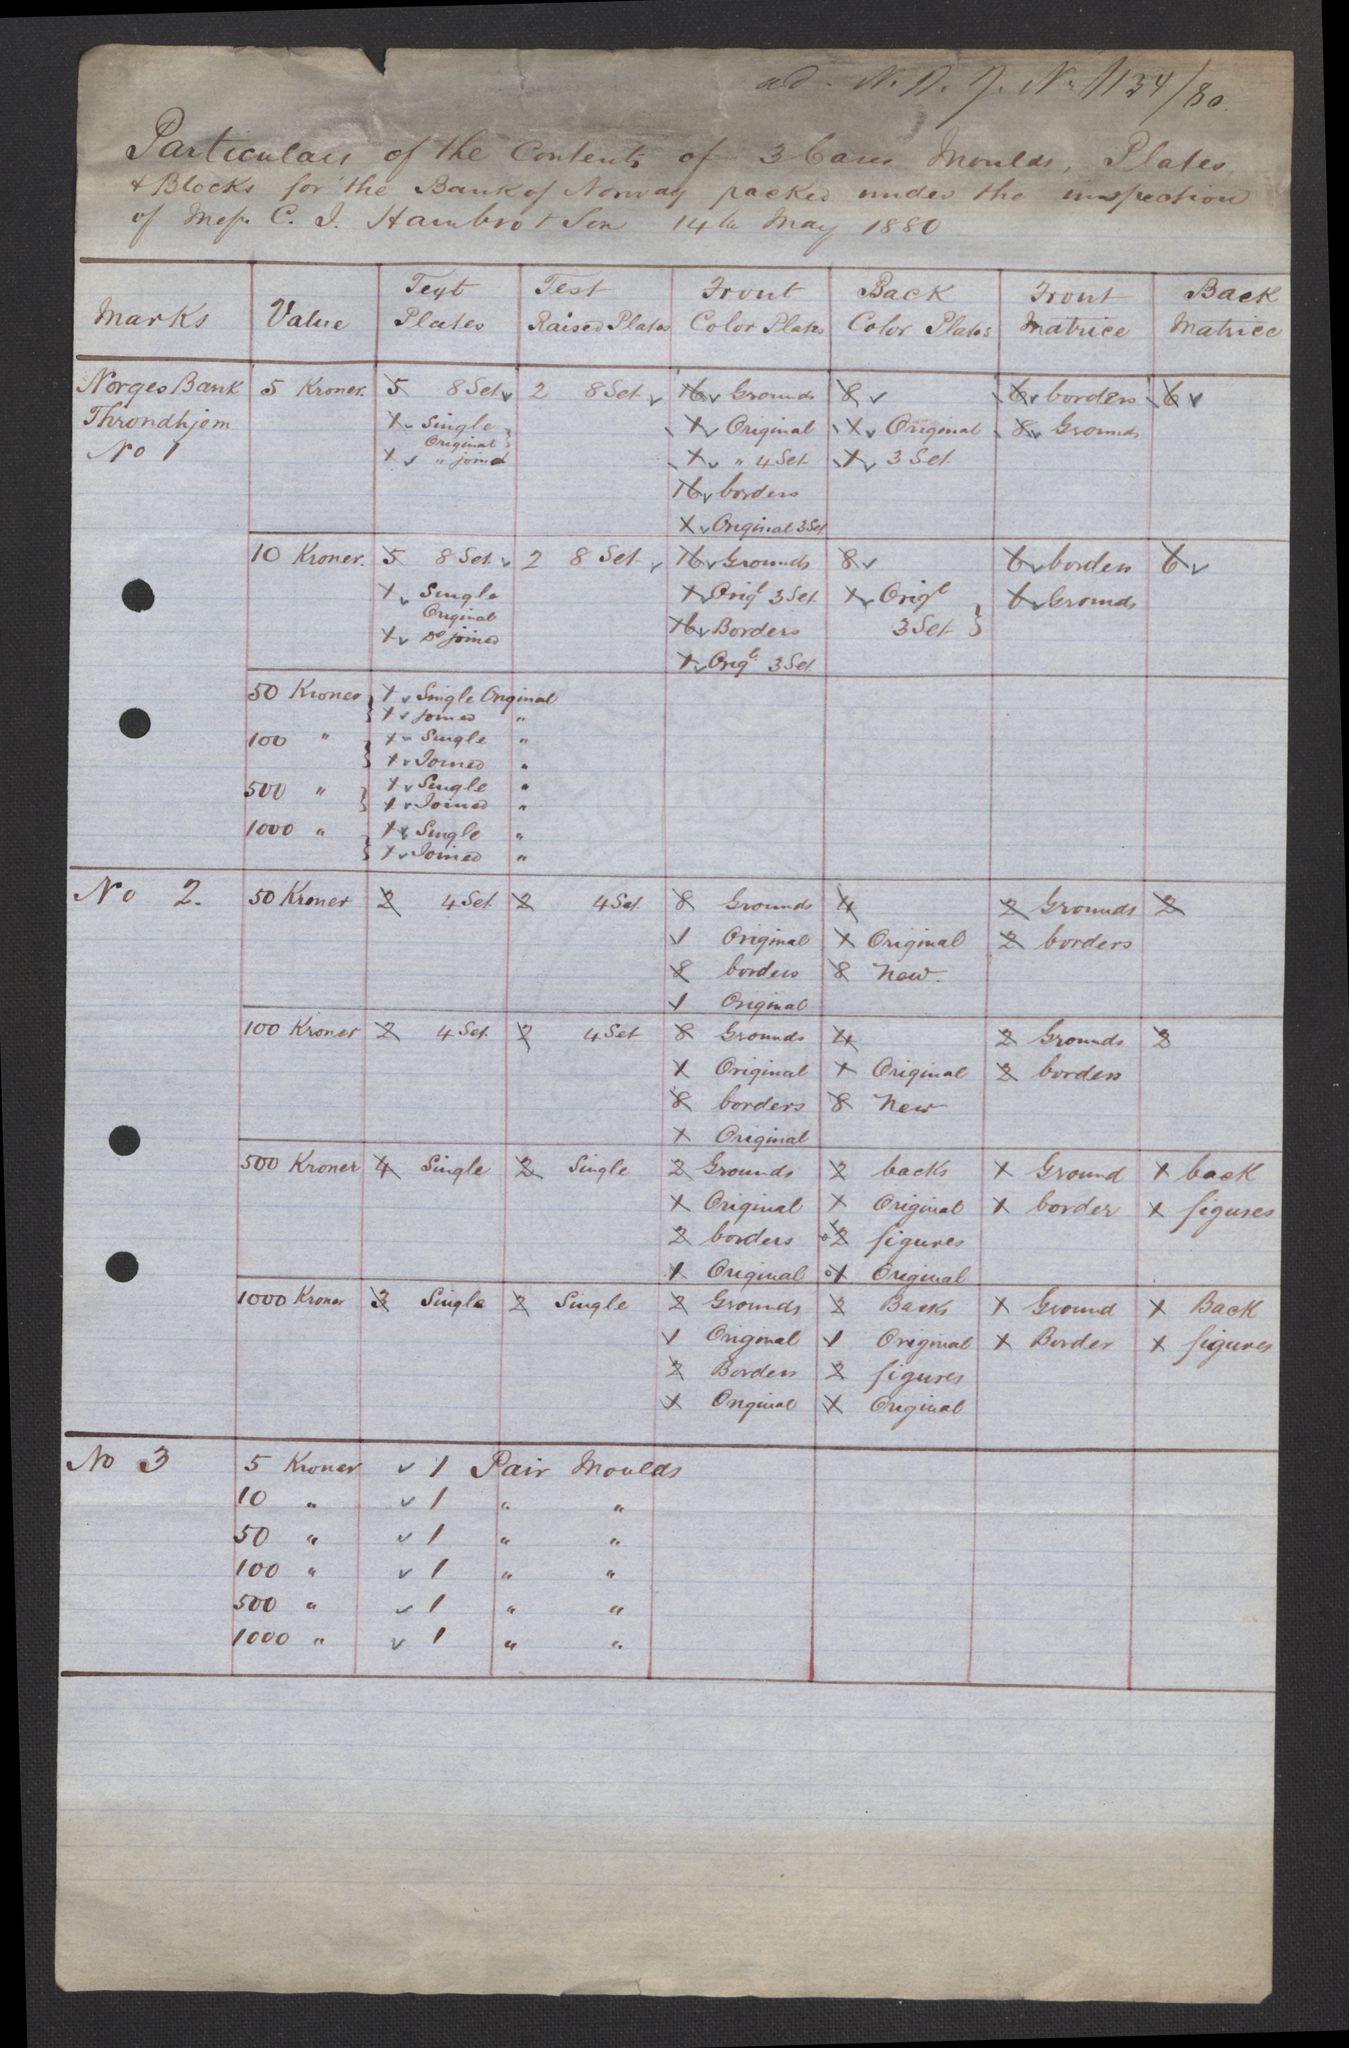 ad. N. No 1134/80.
Particulars of the Contents of 3 Cases Moulds, Plates,
& Blocks for the Bank of Norway packed under the inspection
of Messrs C. J. Hambro & Son 14th May 1880
Marks Value Text Plates Text Raised Plates Front Color Plates Back Color Plates Front Matrice Back Matrice
Norges Bank 5 Kroner. 5 8 Set 2 8 Set 16 Grounds 8 6 borders 6
Throndhjem 1 Single Original 1 Original 1 Original 8 Grounds
No 1 1 " joined 1 " 4 Set 1 3 Set
16 borders
1 Original 3 Set
10 Kroner. 5 8 Set 2 8 Set 16 Grounds 8 6 borders 6
1 Single 1 Origl 3 Set 1 Origl 6 Grounds
Original 16 Borders 3 Set }
1 Do joined
1 Origl 3 Set
50 Kroner { 1 Single Original
1 joined "
100 " { 1 Single "
1 Joined "
500 " } 1 Single "
1 Joined "
1000 " { 1 Single "
1 Joined "
No 2. 50 Kroner 2 4 Set 2 4 Set 8 Grounds 4 2 Grounds 2
1 Original 1 Original 2 borders
8 borders 8 New.
1 Original
100 Kroner 2 4 Set 2 4 Set 8 Grounds 4 2 Grounds 2
1 Original 1 Original 2 borders
8 borders 8 New
1 Original
500 Kroner 4 Single 2 Single 2 Grounds 2 backs 1 Ground 1 back
1 Original 1 Original 1 border 1 figures
2 borders 2 figures
1 Original 1 Original
1000 Kroner 3 Single 2 Single 2 Grounds 2 Backs 1 Ground 1 Back
1 Original 1 Original 1 Border 1 figures
2 Borders 2 figures
1 Original 1 Original
No 3 5 Kroner 1 Pair Moulds
10 " 1 " "
50 " 1 " "
100 " 1 " "
500 " 1 " "
1000 " 1 " "